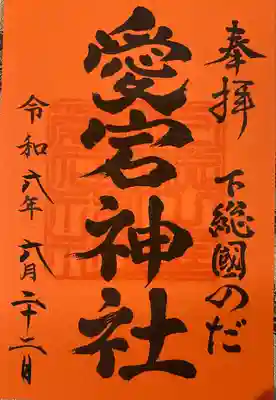 奉拝
下総國のだ
愛宕神社
令和六年 六月二十二日